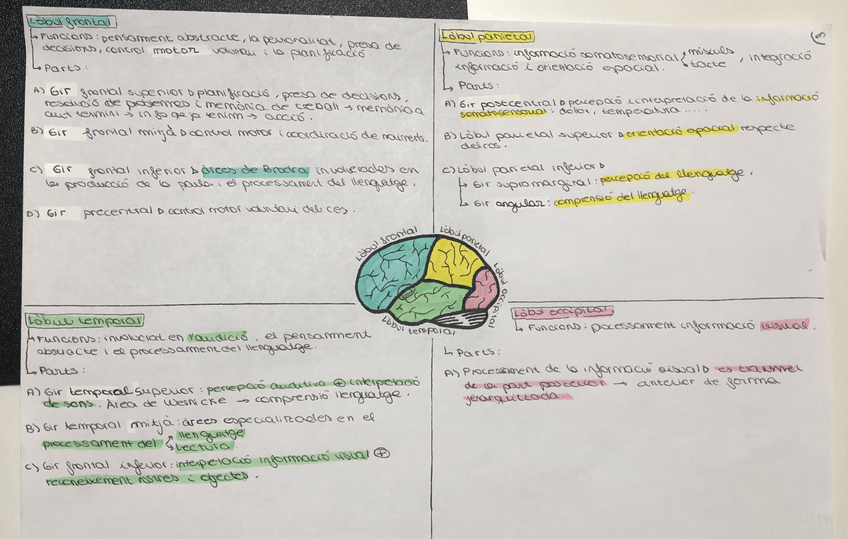 Lòbul frontal
Funcions: pensament abstracte, la personalitat, presa de
decisions, control motor voluntari i la planificació.
Parts:
A) Gir frontal superior planificació, presa de decisions,
resolució de problemes i memòria de treball → memòria a
curt termini → info q ja tenim → acció.
B) Gir frontal mitjà control motor i coordinació de
C) Gir frontal inferior àrees de Broca involucrades en
la producció de la parla i el processament del llenguatge.
D) Gir precentral control motor voluntari del cos.
Lòbul parietal
Funcions: informació somatosensorial músculs , integració
tacte
informació i orientació espacial.
Parts:
A) Gir postcentral percepció i interpretació de la informació
somatosensorial: dolor, temperatura .....
B) Lòbul parietal superior orientació espacial respecte
del cos.
C) Lòbul parietal inferior
Gir supramarginal: percepció del llenguatge.
Gir angular: comprensió del llenguatge.
Lòbul frontal
Lòbul parietal
Lòbul occipital
Lòbul temporal
Lòbul temporal
Funcions: involucrat en l'audició, el pensament
abstracte i el processament del llenguatge.
Parts:
A) Gir temporal superior: percepció auditiva + interpretació
de sons. Àrea de Wernicke → comprensió llenguatge.
B) Gir temporal mitjà: àrees especialitzades en el
processament del llenguatge
lectura
C) Gir frontal inferior: interpretació informació visual +
reconeixement rostres i objectes.
Lòbul occipital
Funcions: processament informació visual.
Parts:
A) Processament de la informació visual es
de la part posterior → anterior de forma
jerarquitzada